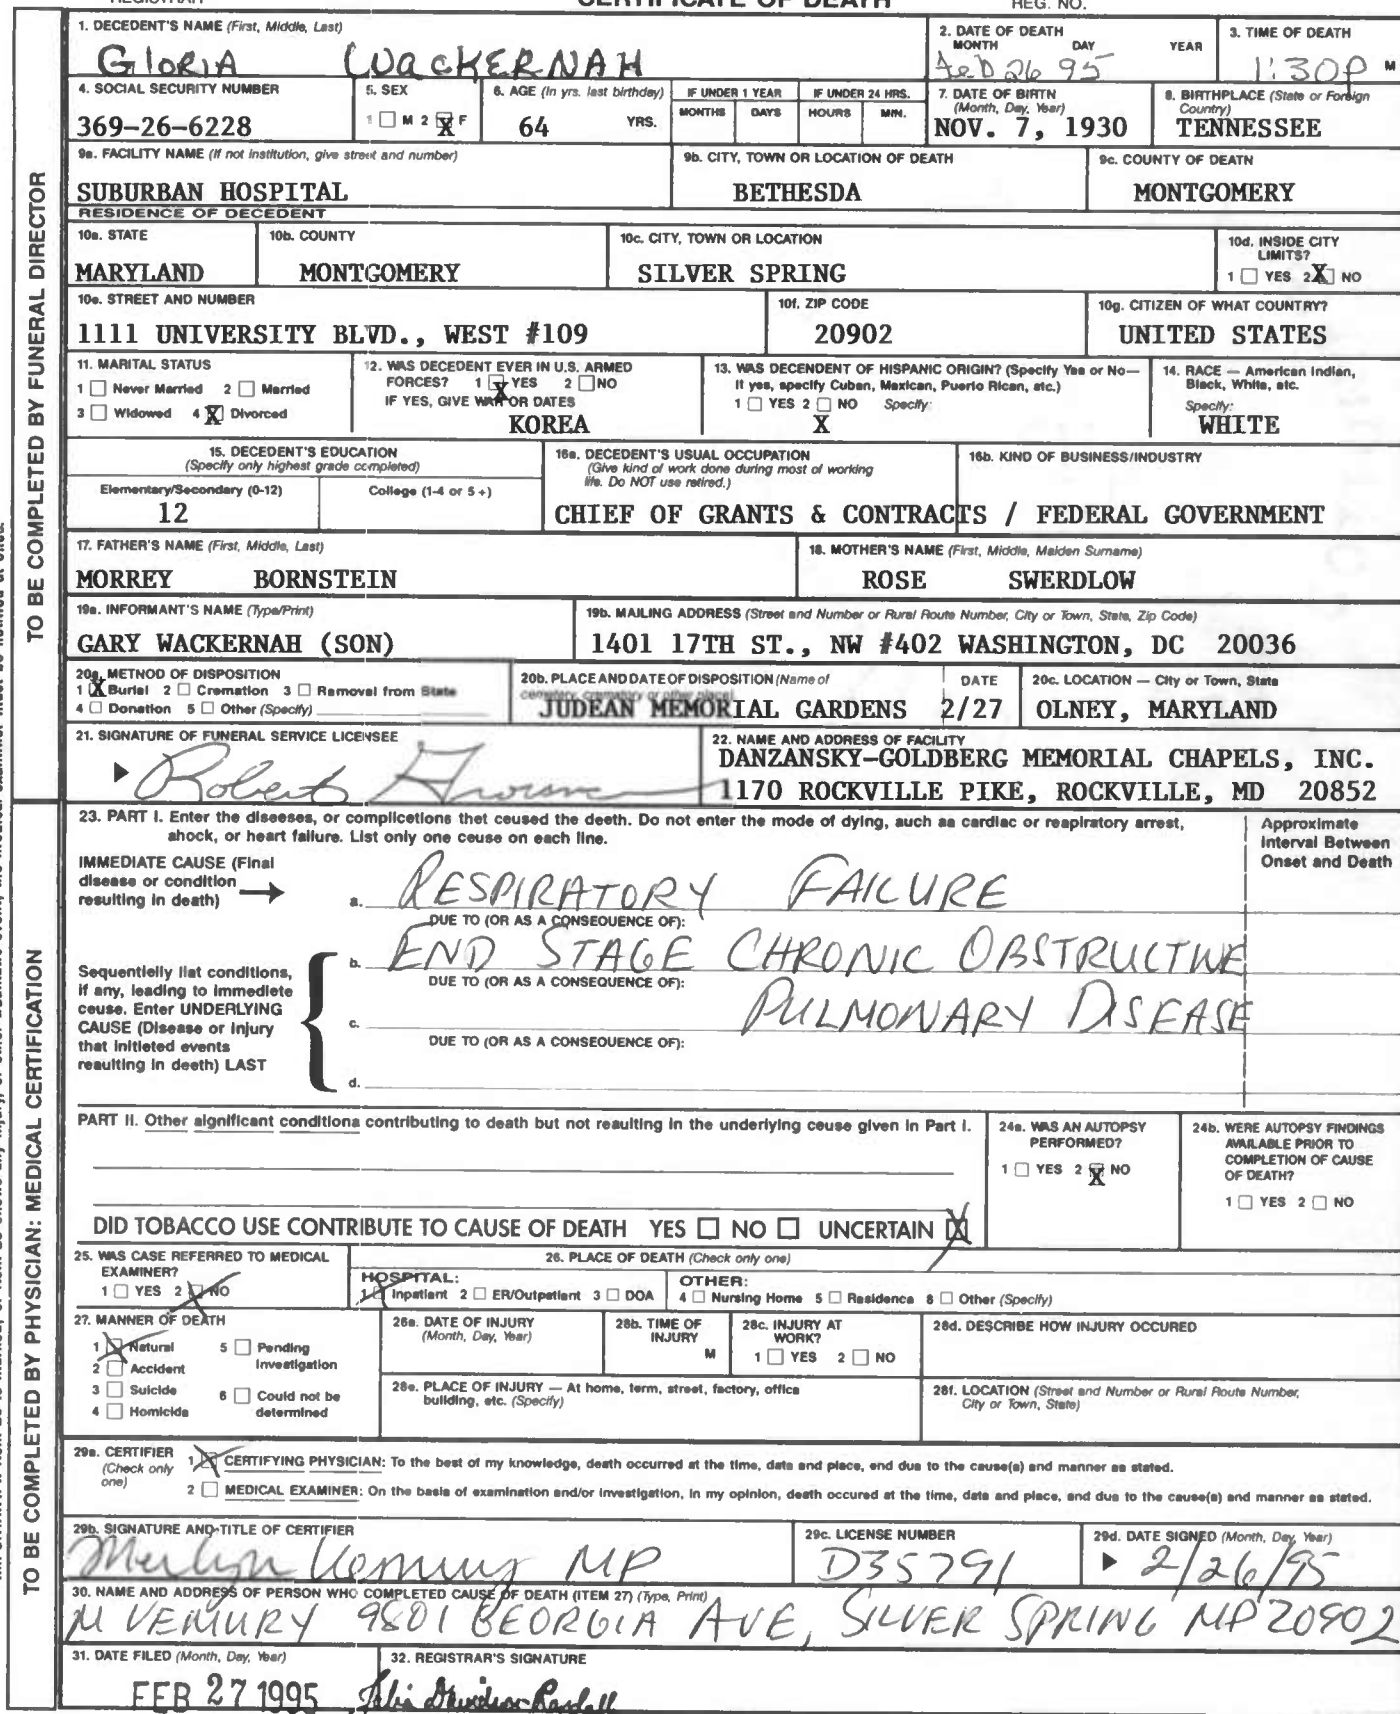 CERTIFICATE OF DEATH
REGISTRAR REG. NO.
TO BE COMPLETED BY FUNERAL DIRECTOR
1. DECEDENT'S NAME (First, Middle, Last)
GLORIA WACKERNAH
2. DATE OF DEATH
MONTH DAY YEAR
Feb 26 95
3. TIME OF DEATH
1:30P M
4. SOCIAL SECURITY NUMBER
369-26-6228
5. SEX
1 ☐ M 2 ☒ F
6. AGE (In yrs. last birthday)
64 YRS.
IF UNDER 1 YEAR
MONTHS DAYS
IF UNDER 24 HRS.
HOURS MIN.
7. DATE OF BIRTH
(Month, Day, Year)
NOV. 7, 1930
8. BIRTHPLACE (State or Foreign
Country)
TENNESSEE
9a. FACILITY NAME (If not institution, give street and number)
SUBURBAN HOSPITAL
9b. CITY, TOWN OR LOCATION OF DEATH
BETHESDA
9c. COUNTY OF DEATH
MONTGOMERY
RESIDENCE OF DECEDENT
10a. STATE
MARYLAND
10b. COUNTY
MONTGOMERY
10c. CITY, TOWN OR LOCATION
SILVER SPRING
10d. INSIDE CITY
LIMITS?
1 ☐ YES 2 ☒ NO
10e. STREET AND NUMBER
1111 UNIVERSITY BLVD., WEST #109
10f. ZIP CODE
20902
10g. CITIZEN OF WHAT COUNTRY?
UNITED STATES
11. MARITAL STATUS
1 ☐ Never Married 2 ☐ Married
3 ☐ Widowed 4 ☒ Divorced
12. WAS DECEDENT EVER IN U.S. ARMED
FORCES? 1 ☒ YES 2 ☐ NO
IF YES, GIVE WAR OR DATES
KOREA
13. WAS DECENDENT OF HISPANIC ORIGIN? (Specify Yes or No—
If yes, specify Cuban, Mexican, Puerto Rican, etc.)
1 ☐ YES 2 ☐ NO Specify:
X
14. RACE — American Indian,
Black, White, etc.
Specify:
WHITE
15. DECEDENT'S EDUCATION
(Specify only highest grade completed)
Elementary/Secondary (0-12) College (1-4 or 5+)
12
16a. DECEDENT'S USUAL OCCUPATION
(Give kind of work done during most of working
life. Do NOT use retired.)
16b. KIND OF BUSINESS/INDUSTRY
CHIEF OF GRANTS & CONTRACTS / FEDERAL GOVERNMENT
17. FATHER'S NAME (First, Middle, Last)
MORREY BORNSTEIN
18. MOTHER'S NAME (First, Middle, Maiden Surname)
ROSE SWERDLOW
19a. INFORMANT'S NAME (Type/Print)
GARY WACKERNAH (SON)
19b. MAILING ADDRESS (Street and Number or Rural Route Number, City or Town, State, Zip Code)
1401 17TH ST., NW #402 WASHINGTON, DC 20036
20a. METHOD OF DISPOSITION
1 ☒ Burial 2 ☐ Cremation 3 ☐ Removal from State
4 ☐ Donation 5 ☐ Other (Specify)
20b. PLACE AND DATE OF DISPOSITION (Name of
cemetery, crematory or other place)
DATE
JUDEAN MEMORIAL GARDENS 2/27
20c. LOCATION — City or Town, State
OLNEY, MARYLAND
21. SIGNATURE OF FUNERAL SERVICE LICENSEE
Robert
22. NAME AND ADDRESS OF FACILITY
DANZANSKY-GOLDBERG MEMORIAL CHAPELS, INC.
1170 ROCKVILLE PIKE, ROCKVILLE, MD 20852
TO BE COMPLETED BY PHYSICIAN: MEDICAL CERTIFICATION
23. PART I. Enter the diseases, or complications that caused the death. Do not enter the mode of dying, such as cardiac or respiratory arrest,
shock, or heart failure. List only one cause on each line.
Approximate
Interval Between
Onset and Death
IMMEDIATE CAUSE (Final
disease or condition
resulting in death)
a. RESPIRATORY FAILURE
DUE TO (OR AS A CONSEQUENCE OF):
Sequentially list conditions,
if any, leading to immediate
cause. Enter UNDERLYING
CAUSE (Disease or injury
that initiated events
resulting in death) LAST
b. END STAGE CHRONIC OBSTRUCTIVE
DUE TO (OR AS A CONSEQUENCE OF):
c. PULMONARY DISEASE
DUE TO (OR AS A CONSEQUENCE OF):
d.
PART II. Other significant conditions contributing to death but not resulting in the underlying cause given in Part I.
24a. WAS AN AUTOPSY
PERFORMED?
1 ☐ YES 2 ☒ NO
24b. WERE AUTOPSY FINDINGS
AVAILABLE PRIOR TO
COMPLETION OF CAUSE
OF DEATH?
1 ☐ YES 2 ☐ NO
DID TOBACCO USE CONTRIBUTE TO CAUSE OF DEATH YES ☐ NO ☐ UNCERTAIN ☒
25. WAS CASE REFERRED TO MEDICAL
EXAMINER?
1 ☐ YES 2 ☒ NO
26. PLACE OF DEATH (Check only one)
HOSPITAL:
1 ☒ Inpatient 2 ☐ ER/Outpatient 3 ☐ DOA
OTHER:
4 ☐ Nursing Home 5 ☐ Residence 6 ☐ Other (Specify)
27. MANNER OF DEATH
1 ☒ Natural 5 ☐ Pending
Investigation
2 ☐ Accident
3 ☐ Suicide 6 ☐ Could not be
determined
4 ☐ Homicide
28a. DATE OF INJURY
(Month, Day, Year)
28b. TIME OF
INJURY
M
28c. INJURY AT
WORK?
1 ☐ YES 2 ☐ NO
28d. DESCRIBE HOW INJURY OCCURED
28e. PLACE OF INJURY — At home, farm, street, factory, office
building, etc. (Specify)
28f. LOCATION (Street and Number or Rural Route Number,
City or Town, State)
29a. CERTIFIER
(Check only
one)
1 ☒ CERTIFYING PHYSICIAN: To the best of my knowledge, death occurred at the time, date and place, and due to the cause(s) and manner as stated.
2 ☐ MEDICAL EXAMINER: On the basis of examination and/or investigation, in my opinion, death occured at the time, date and place, and due to the cause(s) and manner as stated.
29b. SIGNATURE AND TITLE OF CERTIFIER
Vemury MD
29c. LICENSE NUMBER
D35791
29d. DATE SIGNED (Month, Day, Year)
2/26/95
30. NAME AND ADDRESS OF PERSON WHO COMPLETED CAUSE OF DEATH (ITEM 27) (Type, Print)
M VEMURY 9801 GEORGIA AVE, SILVER SPRING MD 20902
31. DATE FILED (Month, Day, Year)
FEB 27 1995
32. REGISTRAR'S SIGNATURE